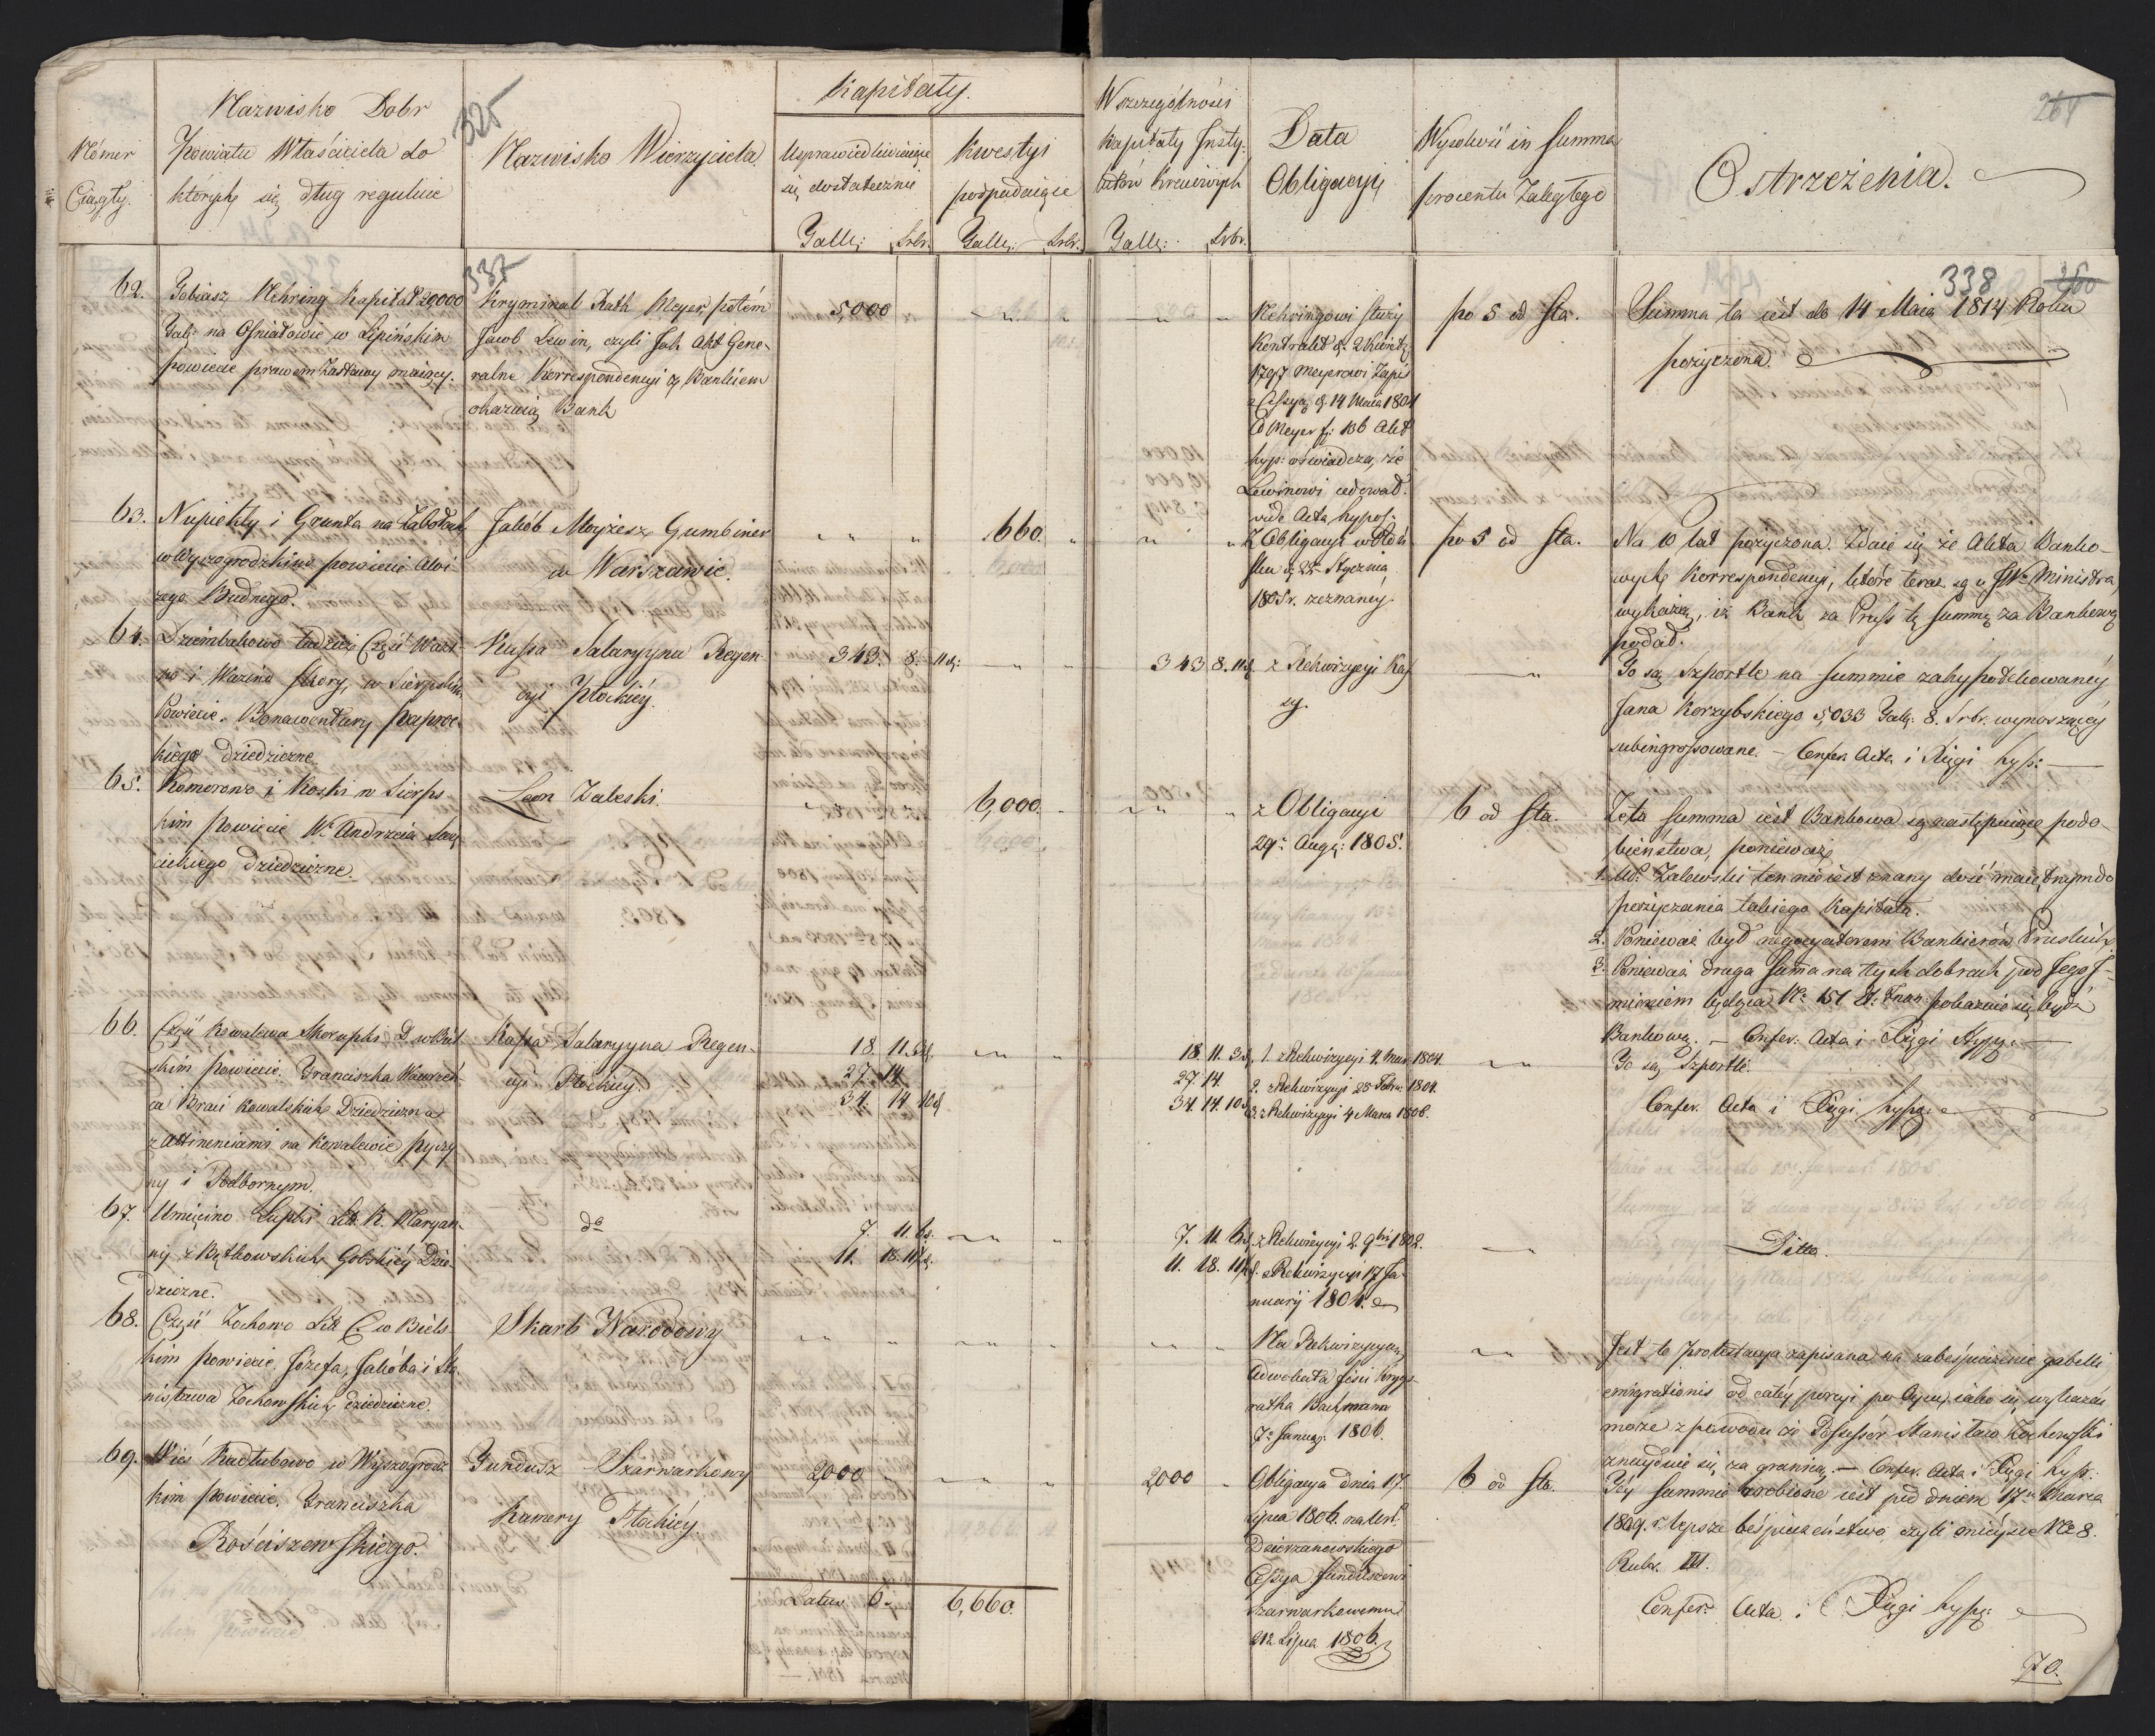 325
Nómer
Ciągły.
Nazwisko Dobr
Powiatu Właściciela do
których się dług reguluie
Nazwisko Wierzyciela
Kapitały.
Usprawiedliwiaiące
się dostatecznie
Talk: Srbr.
Kwestyi
podpadaiące
Talk: Srbr.
Wszczególności
Kapitały Insty-
tutów Kraiowych
Talk: Srbr.
Data
Obligacyi
Wysokość in Summa
procentu Zaległego
Ostrzeżenia.
337
338
62.
Tobiasz Nehring Kapitał 20000
Tal: na Ośniałowie w Lipińskim
powiecie prawem Zastawy maiący.
Kryminal Rath Meyer potém
Jacob Lewin, czyli Jak Akt Gene-
ralne Korrespondencyi z Bankiem
okazuią Bank
5,000
Nehringowi służy
Kontrakt d. 2 Kwietn:
1797 Meyerowi Zapis
z Cessyą d. 14 Maia 1804
Meyer f: 136 Akt
hyp: oświadcza, że
Lewinowi cedował.
vide Acta hypot:
po 5 od Sta.
Summa ta iest do 14 Maia 1814 Roku
pożyczona.
63.
Niupiekły i Grunta na Zabołach
w Wyszogrodzkim powiecie Aloi-
zego Budnego.
Jakób Moyżesz Gumbiner
w Warszawie.
660.
Z Obligacyi
d. 25 Stycznia
1805 r. zeznaney.
po 5 od Sta.
Na 10 lat pożyczona. Zdaie się że Akta Banko-
wych Korrespondencyi, które teraz są u JW. Ministra
wykażą, iż Bank za Pruss tę summę za Bankową
podał.
64.
Dziembakowo tudzież Część
no i Wazino Skory, w Sierpskim
Powiecie. Bonawentury Paproc-
kiego dziedziczne
Kassa Salaryyna Regen-
cyi Płockiéy.
343. 8. 11 d:
343. 8. 11 d.
z Rekwizycyi Kas-
sy.
To są Szportle na summie zahypotekowanéy
Jana Korzybskiego 5,033 Tal: 8. Srbr. wynoszącéy
subingrossowane. – Confer. Acta i Xięgi hyp:
65.
Komorowo i Koski w Sierps-
kim Powiecie W. Andrzeia
cickiego dziedziczne.
Leon Zaleski.
6,000.
z Obligacyi
29. Aug: 1805.
6 od Sta.
Że ta summa iest Bankowa są następuiące podo-
bieństwa, ponieważ
1. Ur. Zalewski ten nie iest znany dość maiętnym do
pożyczania takiego Kapitału.
2. Ponieważ był negocyatorem Bankierów Pruskich.
3. Ponieważ druga suma na tych dobrach pod Jego I-
mieniem będąca N. 151 pokazuie się bydź
Bankową. – Confer. Acta i Xięgi Hyp:
66.
Część Kowalewa Skorupki D. w Biel-
skim powiecie. Franciszka Wawrzeń-
ca Braci Kowalskich Dziedziczna
z attinenciami na Kowalewie Pyszy-
ny i Podbornym.
Kassa Salaryyna Regen-
cyi Płockiey.
18. 11. 3 d.
27. 14.
34. 14. 10 d.
18. 11. 3 d.
27. 14.
34. 14. 10 d.
1. z Rekwizycyi 4. Mar. 1804.
2. z Rekwizycyi 28 Febr. 1804.
3. z Rekwizycyi 4 Marca 1806.
To są Szportle.
Confer. Acta i Xięgi hyp:
67.
Umięcino Łupki Litt K. Maryan-
ny z Bętkowskich Golskiéy Dzie-
dziczne.
do
7. 11. 6 d.
11. 18. 11 d.
7. 11. 6 d.
11. 18. 11 d.
z Rekwizycyi 2. 9bris 1802.
z Rekwizycyi 17 Ja-
nuarij 1804.
Ditto.
68.
Część Żochowo Litt C w Biels-
kim powiecie, Józefa, Jakóba i Sta-
nisława Żochowskich dziedziczne.
Skarb Narodowy
Na Rekwizycyą
Adwokata fisci Krygs-
ratha Bachmana
7. Januar. 1806.
Jest to protestacya zapisana na zabeśpieczenie gabelli
emigrationis od całéy porcyi po Oycu, iako się wykazać
może z powodu że Possessor Stanisław Żochowski
znayduie się za granicą. – Confer. Acta i Xięgi hyp:
69.
Wieś Kadłubowo w Wyszogrodz-
kim powiecie, Franciszka
Rościszewskiego.
Fundusz Szarwarkowy
Kamery Płockiéy.
2000
2,000
Obligacya dnia 17.
Lipca 1806. na Ur.
Dzierzanowskiego
Cessya funduszowi
Szarwarkowemu
d 12 Lipca 1806.
6 od Sta.
Téy summie zrobione iest pod dniem 17 Marca
1809. r. lepsze beśpieczeństwo czyli mieysce Nr 8.
Rubr. III.
Confer. Acta i Xięgi hyp:
Latus 6,660.
70.